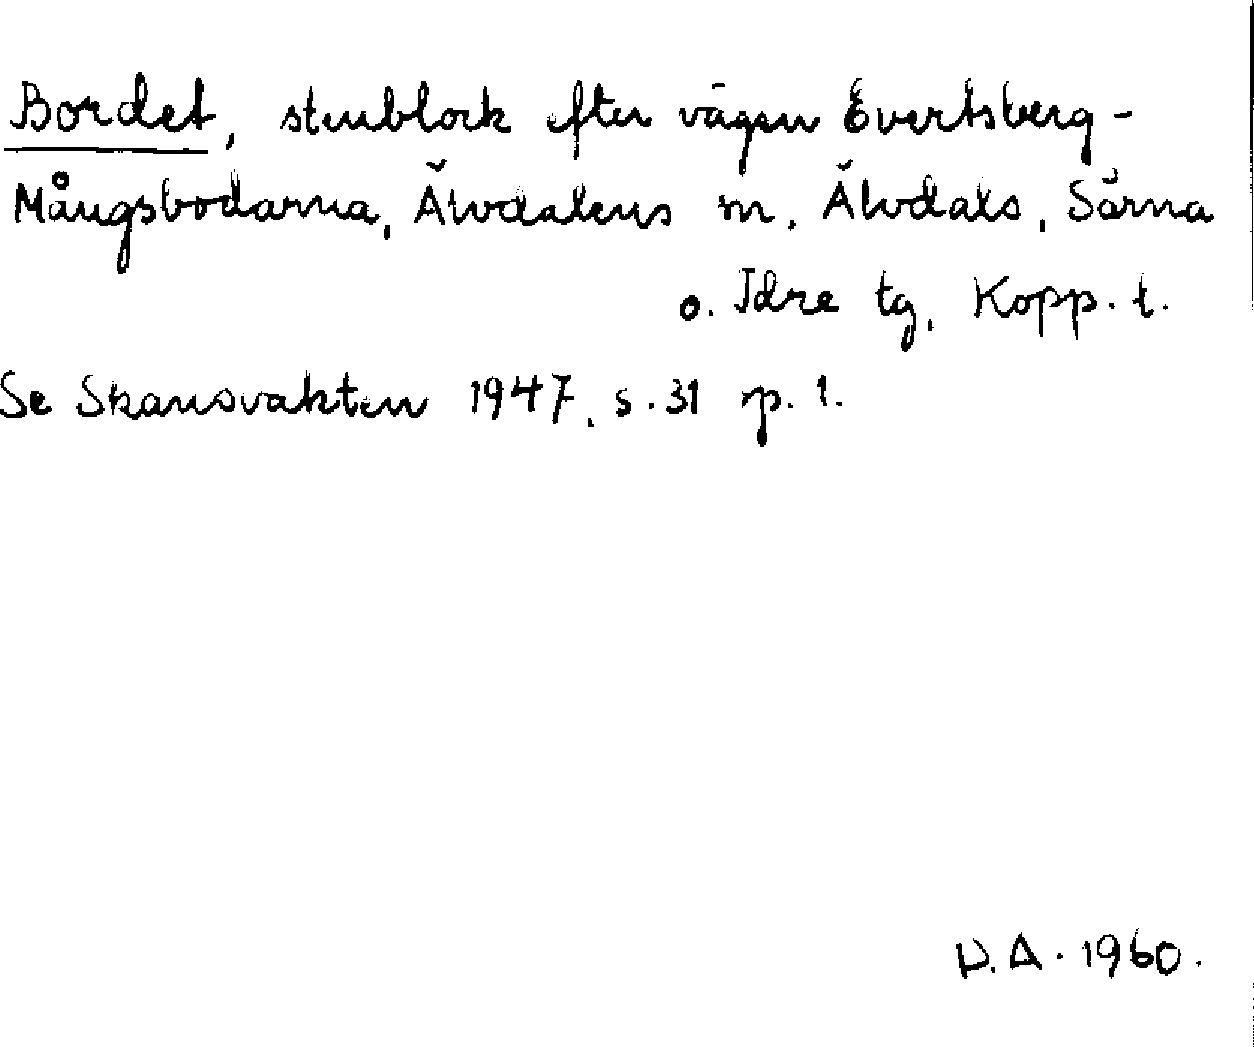 Bordet, stenblock efter vägen Evertsberg-
Mångsbodarna, Älvdalens sn, Älvdals, Särna
o. Idre tg, Kopp. l.
Se Skansvakten 1947, s. 31 sp. 1.
D.A. 1960.